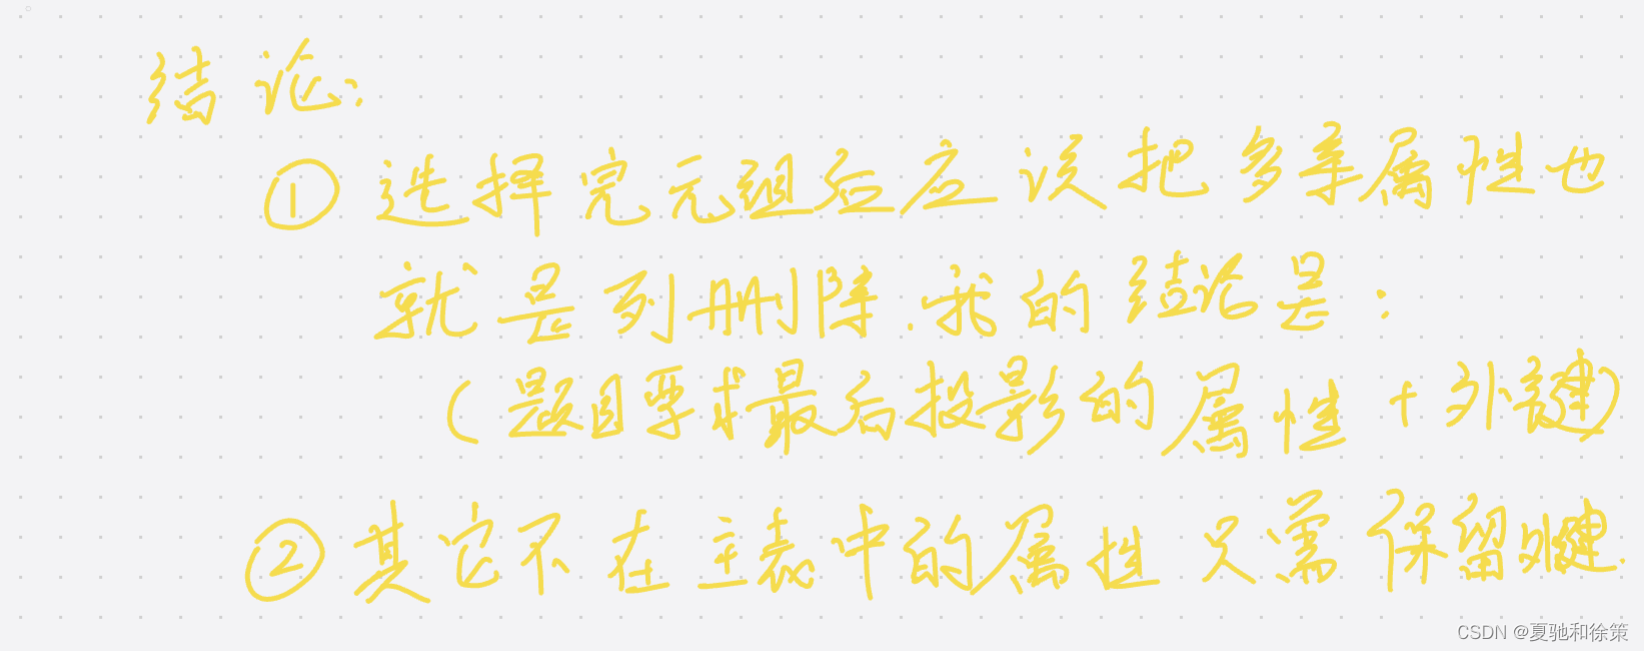 结论:
① 选择完元组后应该把多余属性也
就是列删除.我的结论是:
(题目要求最后投影的属性+外键)
② 其它不在主表中的属性只需保留外键.
CSDN @夏驰和徐策